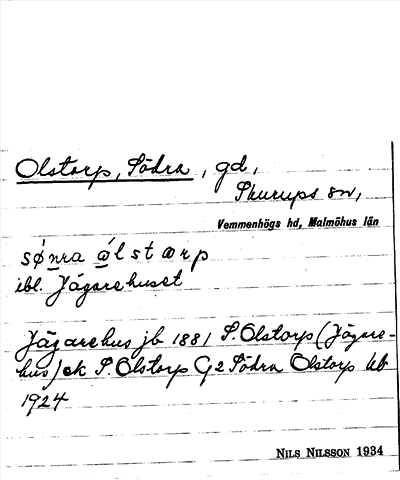 Olstorp, Södra, gd,
Skurups sn,
Vemmenhögs hd, Malmöhus län
sǿnra ǿlstœrp
ibl. Jägarehuset
Jägarehus jb 1881 S. Olstorp (Jägare-
hus) ek S. Olstorp G2 Södra Olstorp kb
1924
NILS NILSSON 1934